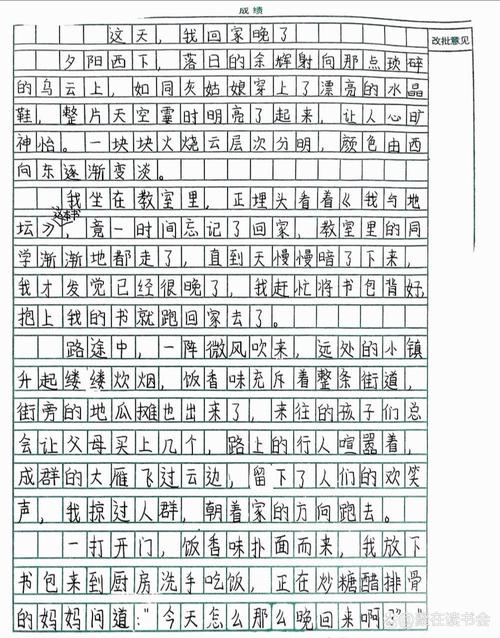 成绩
改批意见
这天，我回家晚了
夕阳西下，落日的余辉射向那点琐碎
的乌云上，如同灰姑娘穿上了漂亮的水晶
鞋，整片天空霎时明亮了起来，让人心旷
神怡。一块块火烧云层次分明，颜色由西
向东逐渐变淡。
我坐在教室里，正埋头看着《我与地
坛》这本书，竟一时间忘记了回家，教室里的同
学渐渐地都走了，直到天慢慢暗了下来，
我才发觉已经很晚了，我赶忙将书包背好，
抱上我的书就跑回家去了。
路途中，一阵微风吹来，远处的小镇
升起缕缕炊烟，饭香味充斥着整条街道，
街旁的地瓜摊也出来了，来往的孩子们总
会让父母买上几个，路上的行人喧嚣着，
成群的大雁飞过云边，留下了人们的欢笑
声，我掠过人群，朝着家的方向跑去。
一打开门，饭香味扑面而来，我放下
书包来到厨房洗手吃饭，正在炒糖醋排骨
的妈妈问道："今天怎么那么晚回来啊？"